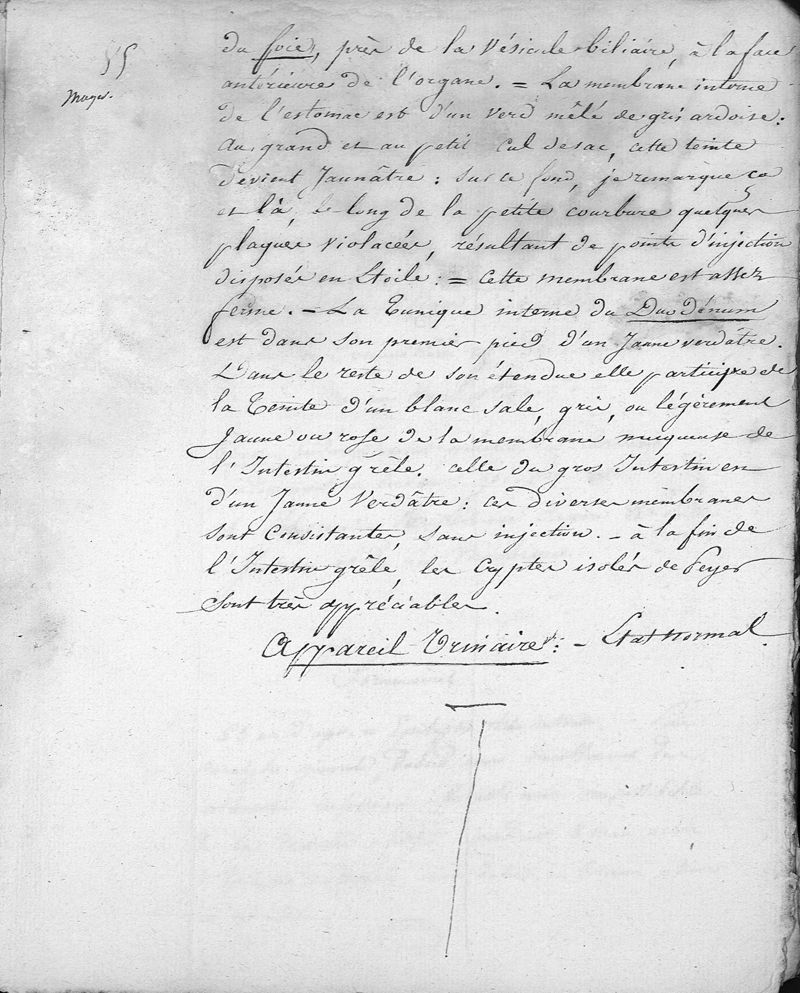 55
du foie, près de la vésicule biliaire, à la face
antérieure de l'organe. = La membrane interne
de l'estomac est d'un verd mêlé de gris ardoise :
au grand et au petit cul de sac, cette teinte
devient Jaunâtre : sur ce fond, je remarque ça
et là, le long de la petite courbure quelques
plaques violacées, résultant de points d'injection
disposés en Etoile : = cette membrane est assez
ferme. - La Tunique interne du Duodénum
est dans son premier pied d'un Jaune verdâtre.
Dans le reste de son étendue elle participe de
la Teinte d'un blanc sale, gris, ou légèrement
Jaune ou rose de la membrane muqueuse de
l'Intestin grêle. celle du gros Intestin est
d'un Jaune Verdâtre : ces diverses membranes
sont Consistantes, sans injection. - à la fin de
l'Intestin grêle, les Cryptes isolés de Peyer
sont très appréciables.
Appareil Urinaire : - Etat normal.